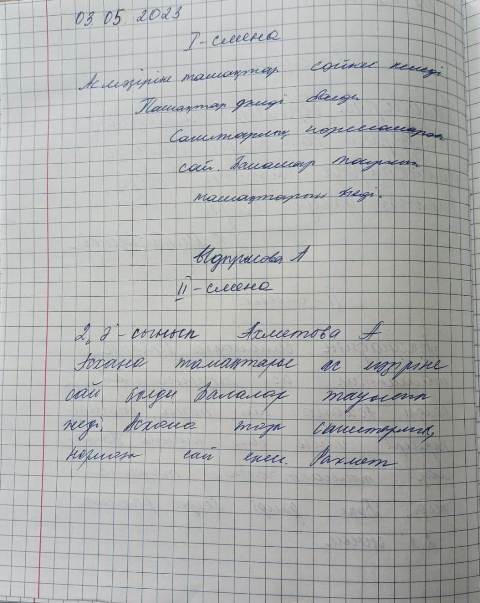 03 05 2023
I-смена
Ас мәзіріне тамақтар сәйкес келеді
Тамақтар дәмді болды
Санитарлық нормаларға
сай. Балалар тауысып
тамақтарын жеді.
Идрисова А
II-смена
2, д-сынып Ахметова А
Асхана тамақтары ас мәзіріне
сай болды Балалар тауысып
жеді, Асхана таза санитарлық,
нормаға сай екен. Рахмет